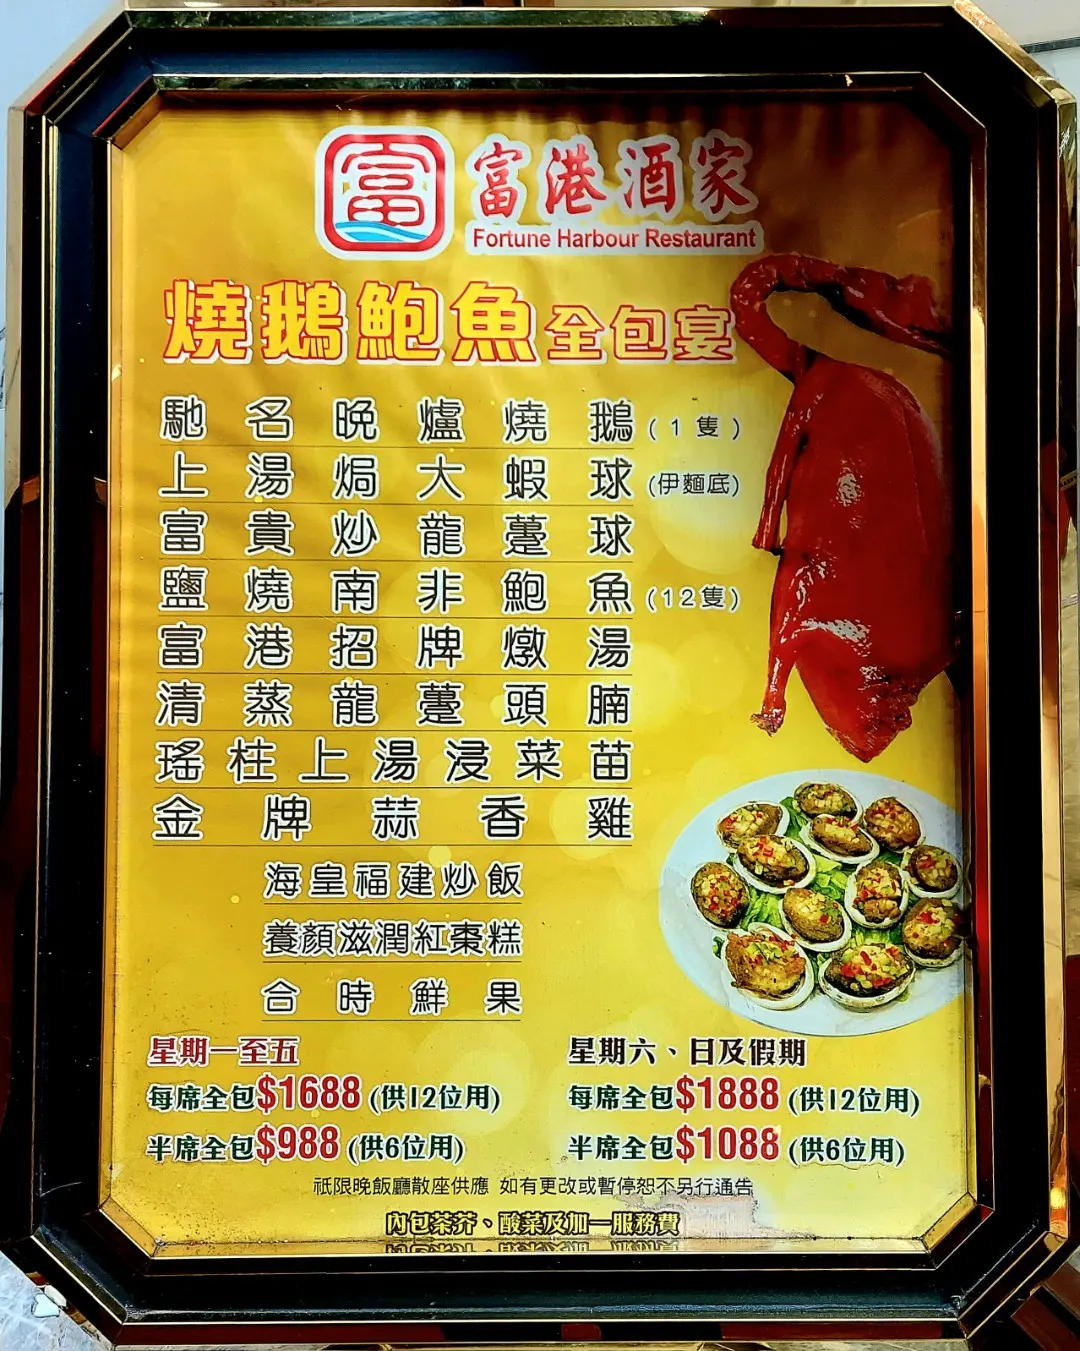 富
富港酒家
Fortune Harbour Restaurant
燒鵝鮑魚全包宴
馳名晚爐燒鵝(1隻)
上湯焗大蝦球(伊麵底)
富貴炒龍躉球
鹽燒南非鮑魚(12隻)
富港招牌燉湯
清蒸龍躉頭腩
瑤柱上湯浸菜苗
金牌蒜香雞
海皇福建炒飯
養顏滋潤紅棗糕
合時鮮果
星期一至五
每席全包$1688(供12位用)
半席全包$988(供6位用)
星期六、日及假期
每席全包$1888(供12位用)
半席全包$1088(供6位用)
祇限晚飯廳散座供應 如有更改或暫停恕不另行通告
內包茶芥、酸菜及加一服務費